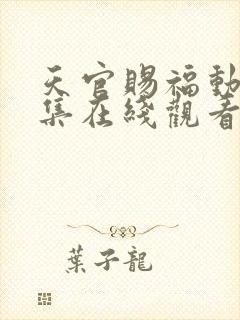 天官賜福動
集在綫觀看
葉子龍